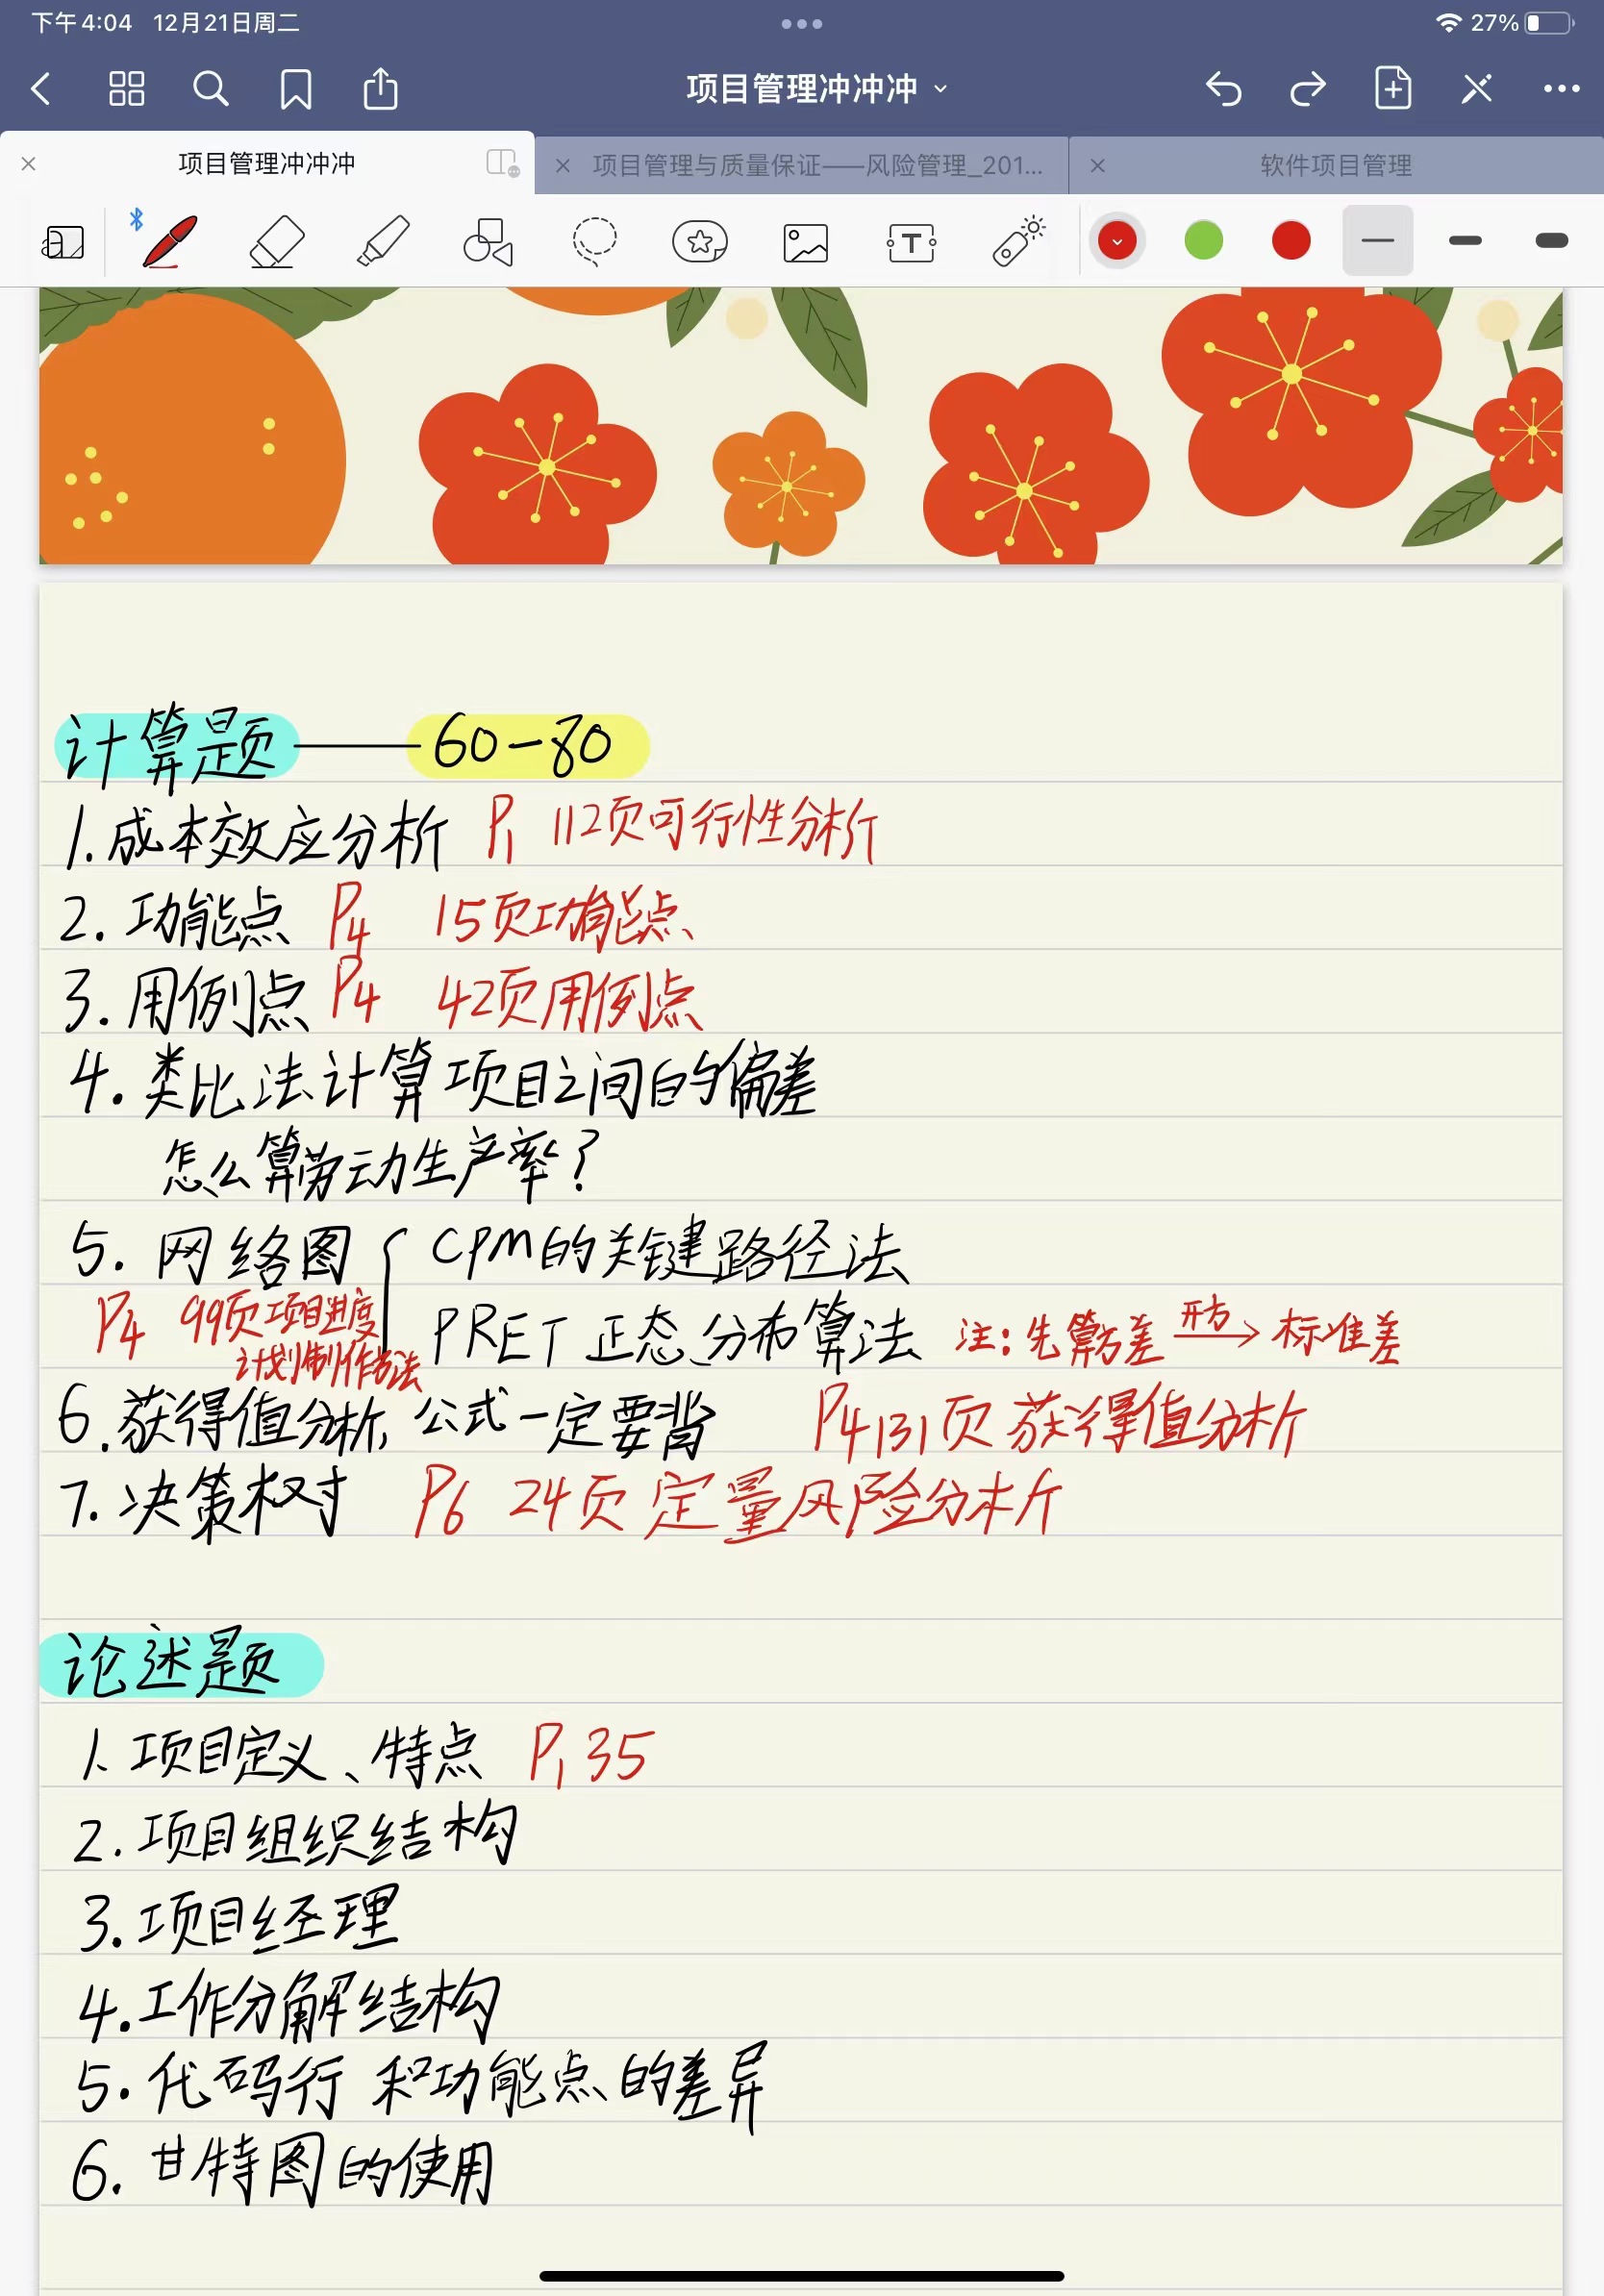 下午4:04 12月21日周二
27%
项目管理冲冲冲
项目管理冲冲冲
项目管理与质量保证——风险管理_201...
软件项目管理
计算题——60-80
1.成本效应分析 P1 112页可行性分析
2.功能点 P4 15页功能点
3.用例点 P4 42页用例点
4.类比法计算项目之间的偏差
怎么算劳动生产率?
5.网络图 CPM的关键路径法
P4 99页项目进度计划制作方法
PRET正态分布算法 注:先算方差 开方→ 标准差
6.获得值分析,公式一定要背 P4 131页 获得值分析
7.决策树 P6 24页 定量风险分析
论述题
1.项目定义、特点 P1 35
2.项目组织结构
3.项目经理
4.工作分解结构
5.代码行和功能点的差异
6.甘特图的使用